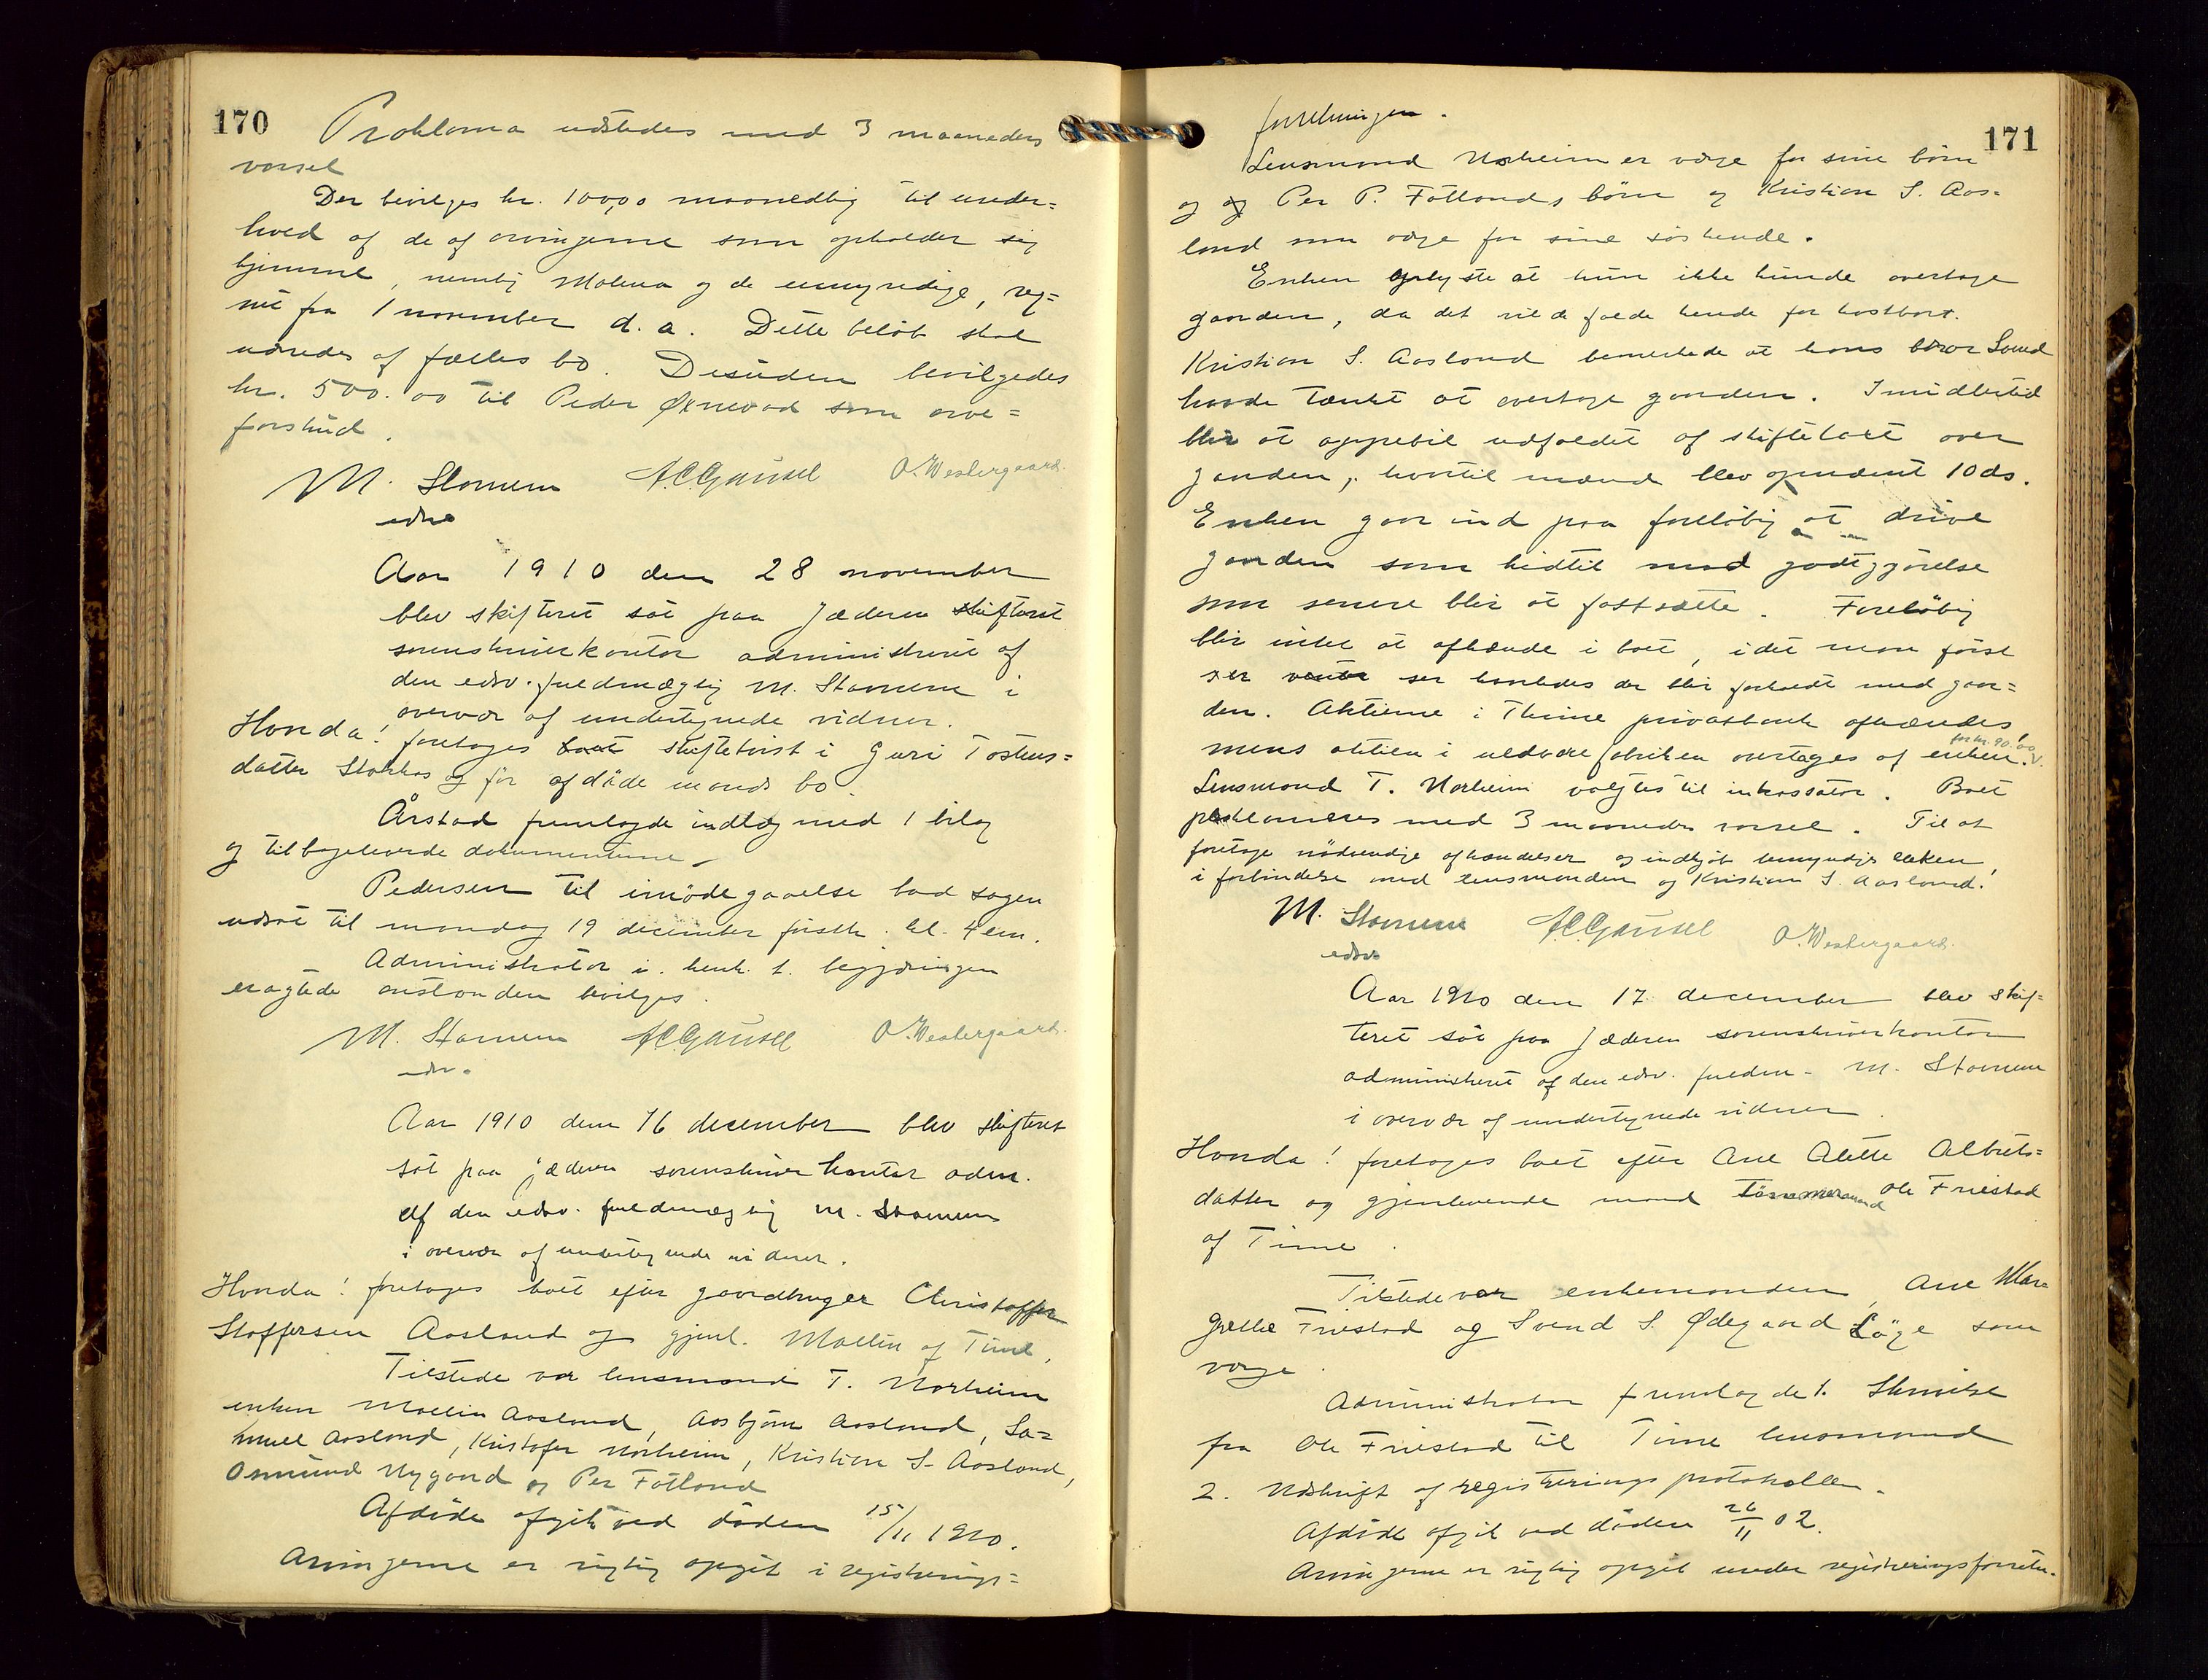 170
Proklama udstedes med 3 maaneders
varsel
Der bevilges kr. 100,00 maanedlig til under=
hold af de af arvingerne som opholder sig
hjemme, nemlig Malena og de umyndige, reg=
net fra 1 november d. a. Dette beløb skal
udredes af fælles bo. Desuden bevilgedes
kr. 500.00 til Peder Øxnevad som arve=
forskud.
M. Stamem A.C.Gausel O. Westergaard.
edsv
Aar 1910 den 28 november
blev skifteret sat paa Jæderen skifteret
sorenskriverkontor administreret af
den edsv. fuldmægtig M. Stamem i
overvær af undertegnede vidner.
Hvorda! foretages boet skiftetvist i Guri Tostens=
datter Storhos og før afdøde mands bo.
Årstad fremlagde indlæg med 1 bilag
og tilbageleverde dokumenterne.
Pedersen til imødegaaelse bad sagen
udsat til mandag 19 december førstk. kl. 4 em.
Administrator i henh. t. begjæringen
eragtede anstanden bevilges.
M. Stamem A.C.Gausel O. Westergaard.
edsv.
Aar 1910 den 16 december blev skifteret
sat paa jæderen sorenskriverkontor adm.
af den edsv. fuldmægtig M. Stamem
i overvær af undertegnede vidner.
Hvorda! foretages boet efter gaardbruger Christoffer
Stoffersen Aasland og gjenl. Mallin af Time,
Tilstede var lensmand T. Norheim
enken Mallin Aasland, Aasbjørn Aasland, Sa=
muel Aasland, Kristofer Norheim, Kristian S. Aasland,
Osmund Nygaard og Per Fotland
Afdøde afgik ved døden 15/11 1910.
Arvingerne er rigtig opgit i registrerings=
171
forretningen.
Lensmand Norheim er værge for sine børn
og og Per P. Fotlands børn og Kristian S. Aas=
land som værge for sine søskende.
Enken oplyste at hun ikke kunde overtage
gaarden, da det vilde falde hende for kostbart.
Kristian S. Aasland bemerkede at hans bror Svend
havde tænkt at overtage gaarden. Imidlertid
blir at oppebie udfaldet af skiftetaxt over
gaarden, hvortil mænd blev opnævnt 10 ds.
Enken gaar ind paa foreløbig at drive
gaarden som hidtil mod godtgjørelse
som senere blir at fastsætte. Foreløbig
blir intet at afhænde i boet, idet man først
ser ser hvorledes der blir forholdt med gaar=
den. Aktierne i Thime privatbank afhændes,
mens aktien i uldvarefabriken overtages af enken. for kr. 90.00
Lensmand T. Norheim valgtes til inkassator. Boet
proklameres med 3 maaneders varsel. Til at
foretage nødvendige afhændelser og indkjøb bemyndiges enken
i forbindelse med lensmanden og Kristian S. Aasland.
M. Stamem A.C.Gausel O. Westergaard.
edsv
Aar 1910 den 17 december blev skif=
teret sat paa Jæderen sorenskriverkontor
administreret af den edsv. fuldm. M. Stamem
i overvær af undertegnede vidner.
Hvorda! foretages boet efter Ane Alette Albrets=
datter og gjenlevende mand tømmermand Ole Friestad
af Time.
Tilstede var enkemanden, Ane Mar=
grethe Friestad og Svend S. Ødegaard Løge som
værge.
Administrator fremlagde 1. Skrivelse
fra Ole Friestad til Time lensmand
2. Udskrift af registreringsprotokollen.
Afdøde afgik ved døden 26/11 02.
Arvingerne er rigtig opgit under registreringsforretn.